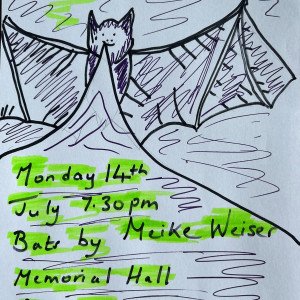 Monday 14th
July 7.30pm
Bats by Meike Weiser
Memorial Hall